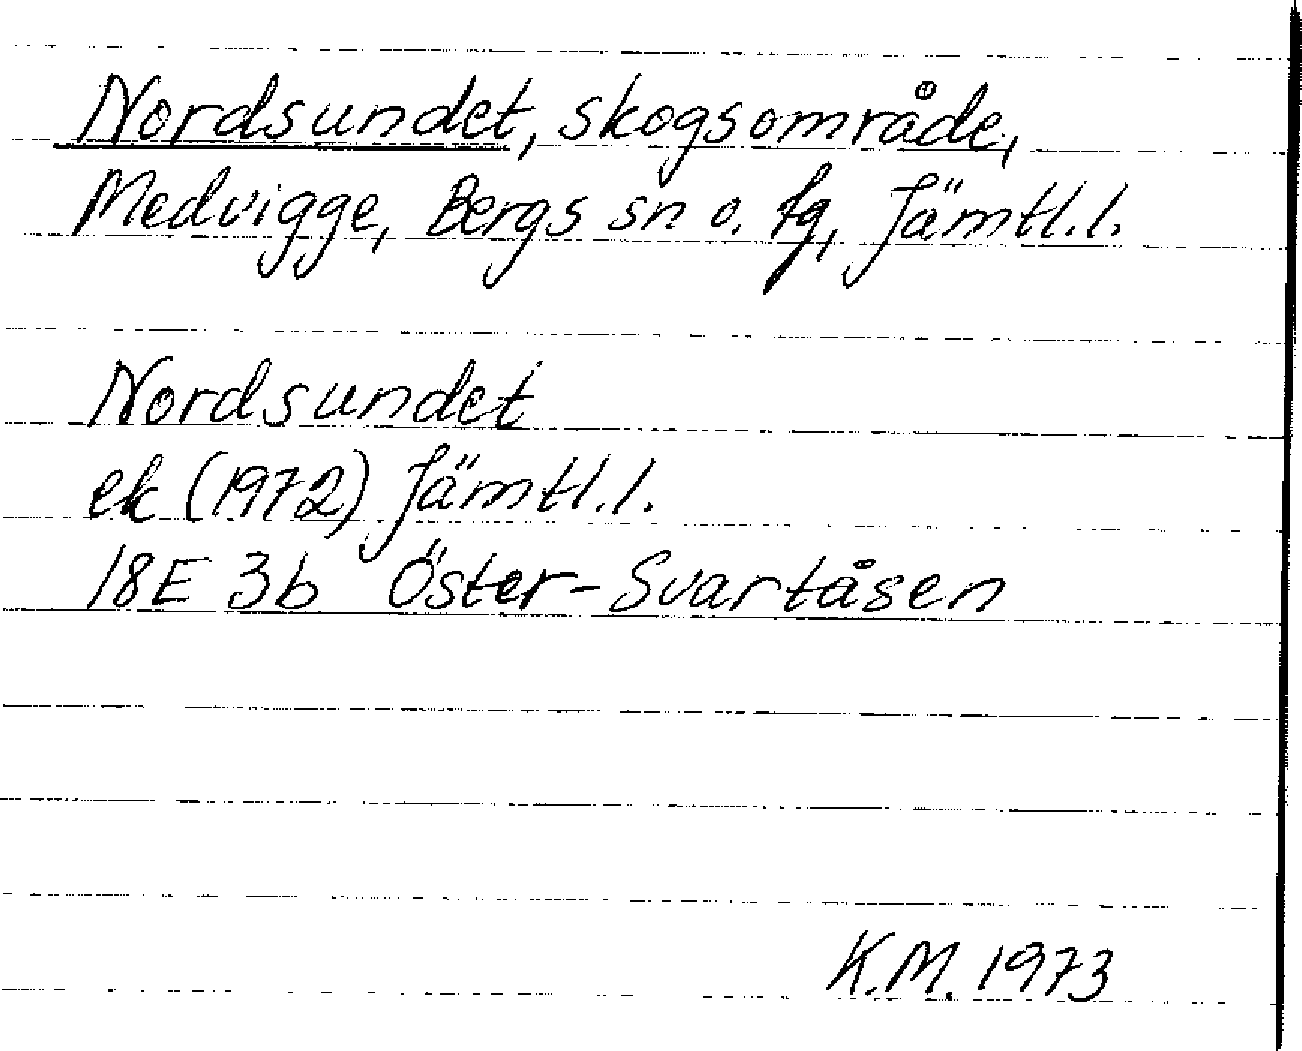 Nordsundet, skogsområde,
Medvigge, Bergs sn o. tg, Jämtl.l.
Nordsundet
ek (1972) Jämtl.l.
18E 3b Öster-Svartåsen
K.M. 1973